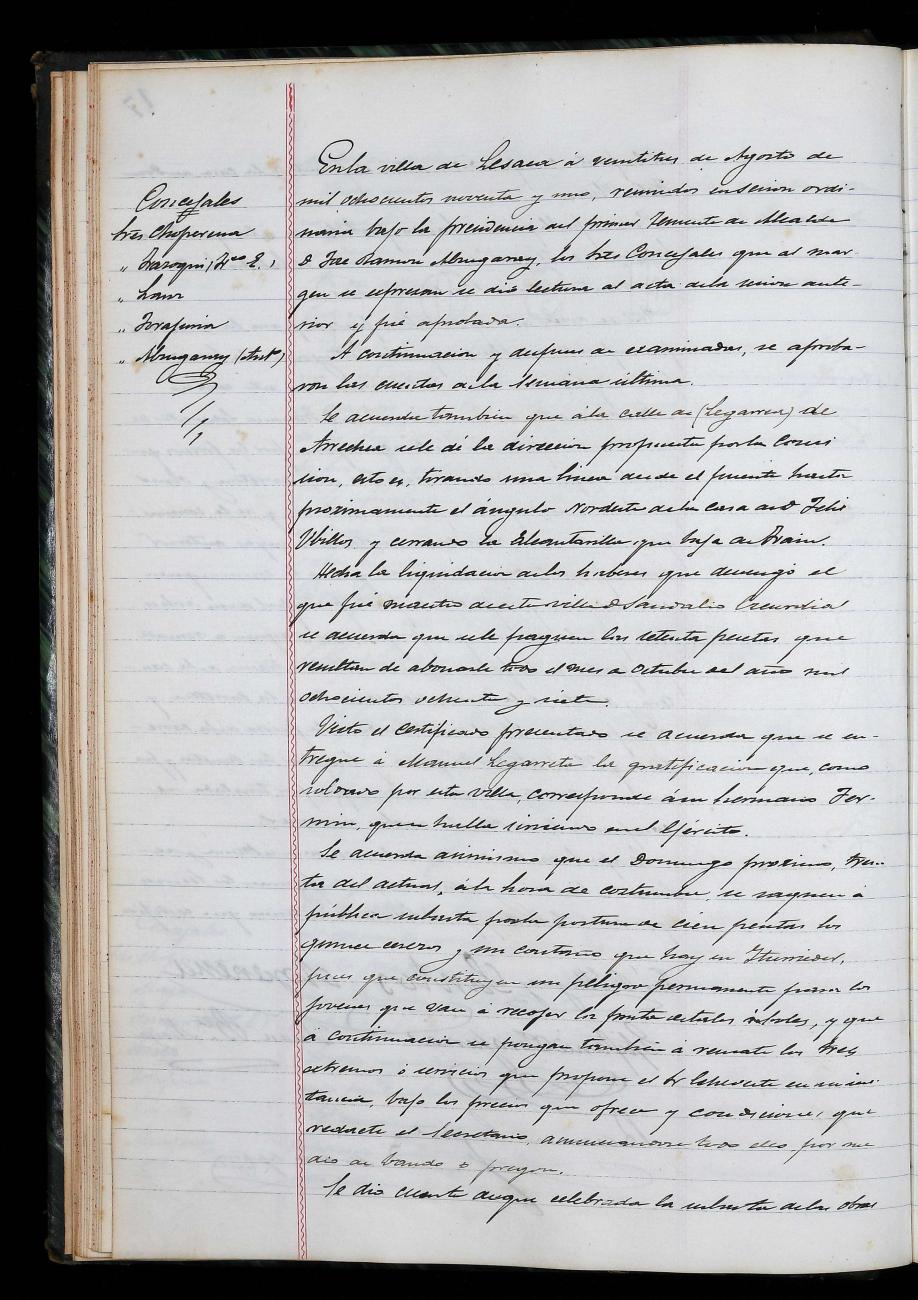 Concejales
tres Choperena
" (Fco E.)
" Lanz
" Irasforia
" Alzugaray (Ant°)
En la villa de Lesaca á veintitres de Agosto de
mil ochocientos noventa y uno, reunidos en sesion ordi-
naria bajo la presidencia del primer Teniente de Alcalde
D Jose Ramon Alzugaray, los tres Concejales que al mar-
gen se espresan se dió lectura al acta de la sesion ante-
rior y fué aprobada.
A continuacion y despues de examinadas, se aproba-
ron las cuentas de la Semana última.
Se acuerda tambien que á la calle de (Legarrea) de
Arrechea se le dé la direccion propuesta por la Comi
sion, esto es, tirando una linea desde el puente hasta
proximamente el ángulo Nordeste de la casa de D Felix
y cerrando la Alcantarilla que baja de
Hecha la liquidacion de los haberes que devengó el
que fué maestro de esta villa D Sandalio
se acuerda que se le paguen las setenta pesetas que
resultan de abonarle todo el mes de Octubre del año mil
ochocientos ochenta y siete.
Visto el certificado presentado se acuerda que se en-
tregue á Manuel Legarreta la gratificacion que, como
soldado por esta villa, corresponde á su hermano Fer-
min, que se halla sirviendo en el Ejército.
Se acuerda asimismo que el Domingo proximo, trein-
ta del actual, á la hora de costumbre, se saquen á
pública subasta por la postura de cien pesetas los
quince cerezos y un castaño que hay en
pues que constituyen un peligro permanente para los
jovenes que van á recojer la fruta de tales árboles, y que
á continuacion se pongan tambien á remate los tres
estremos ó servicios que propone el Sr en su ins-
tancia, bajo los precios que ofrece y condiciones que
redacte el Secretario, anunciandose todo ello por me
dio de bando ó pregon.
Se dio cuenta de que celebrada la subasta de las obras